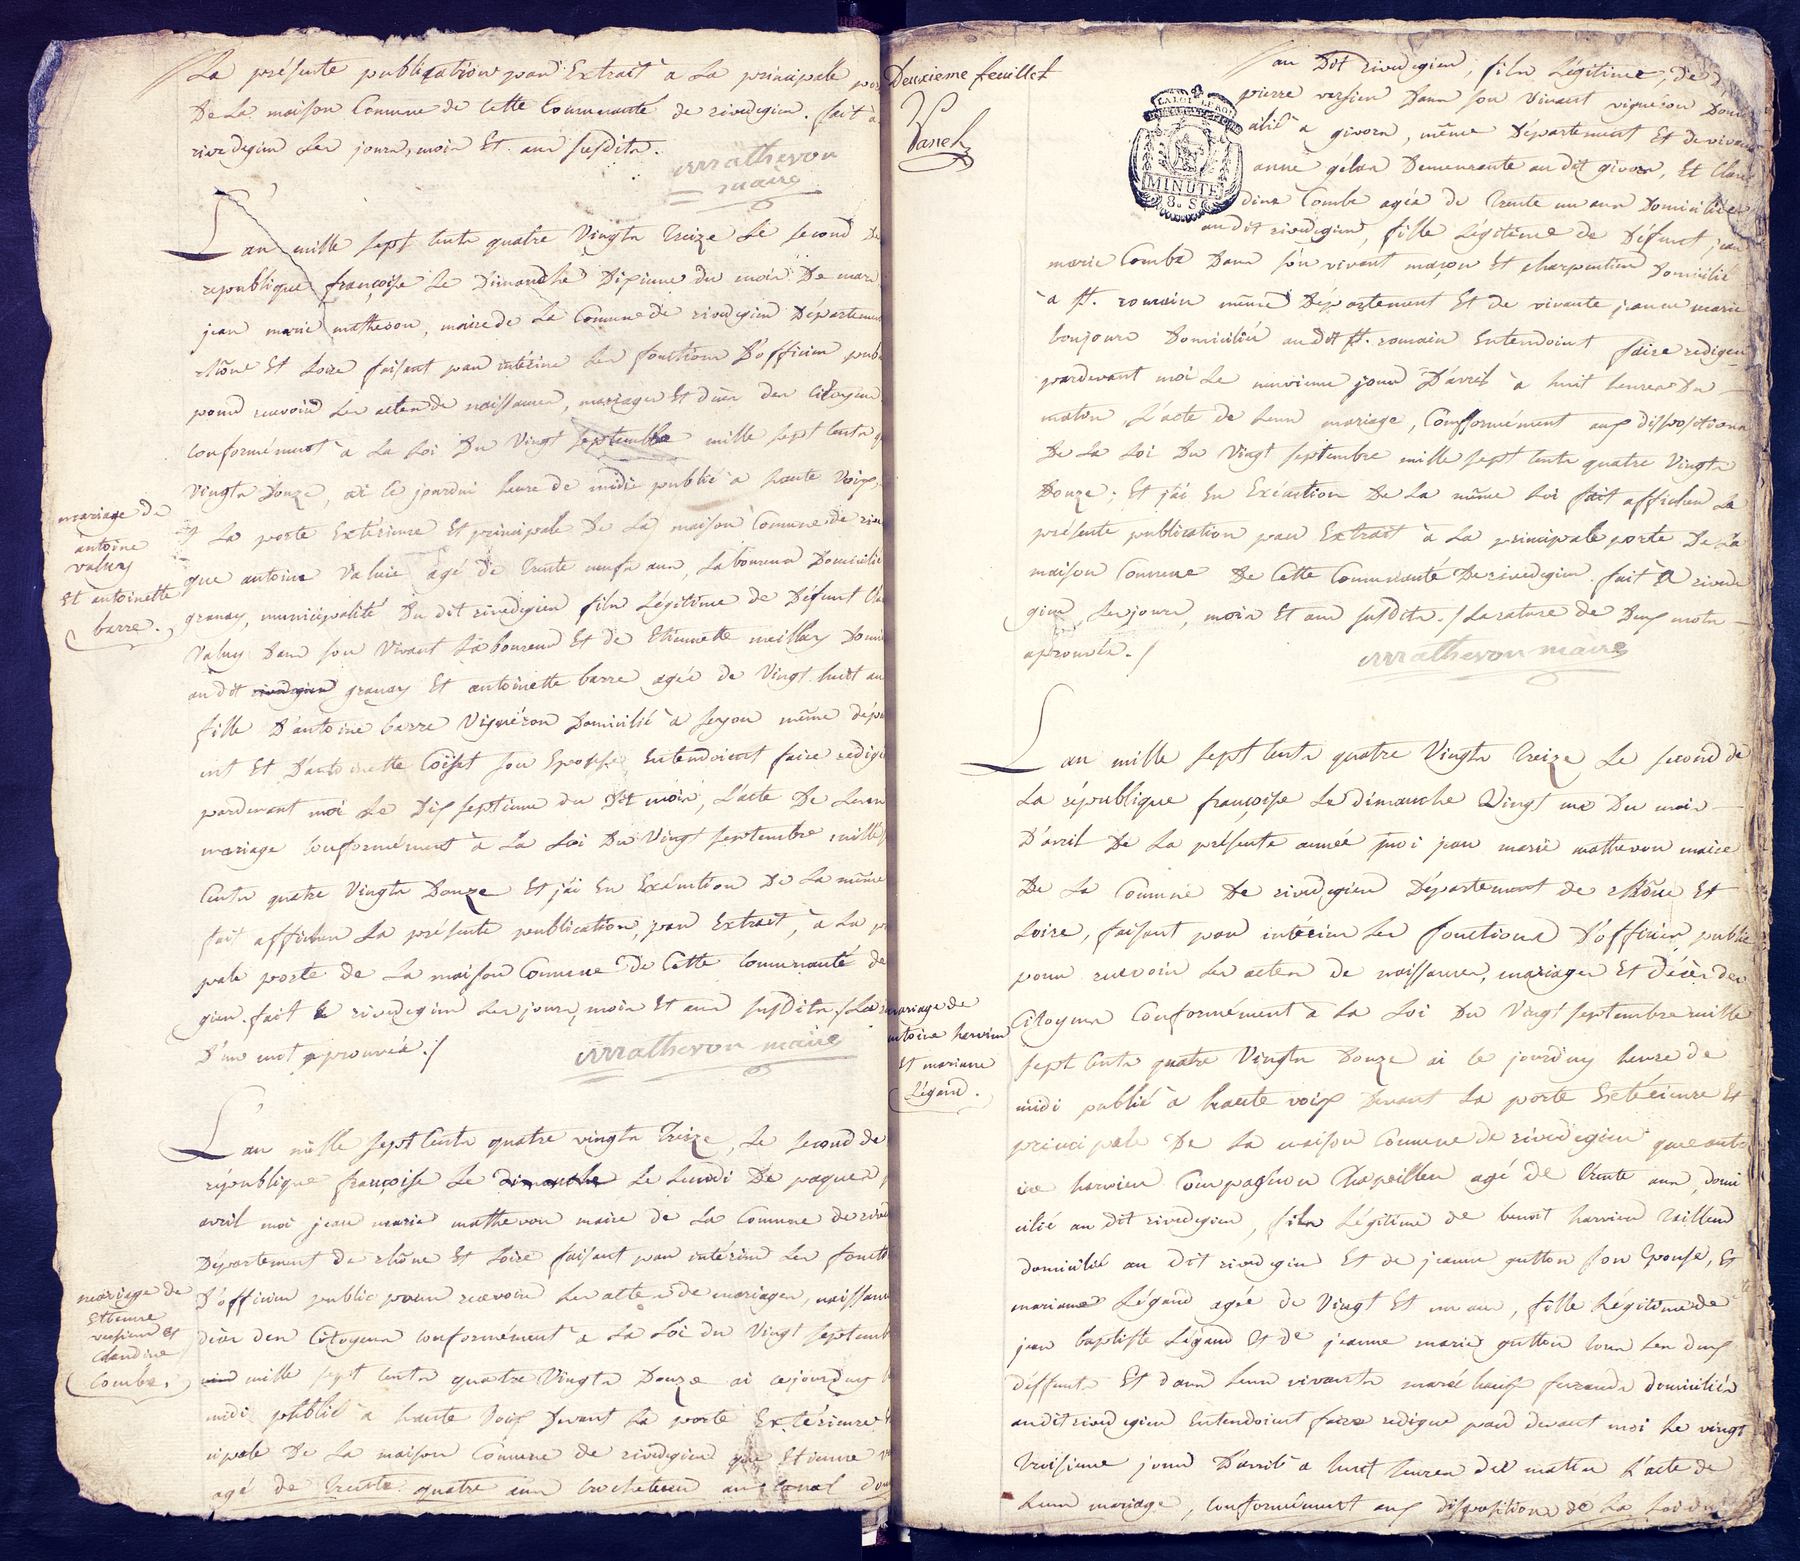 La présente publication par Extrait à La principale por
De La maison Comune de cette Communauté de rivedegier. fait à
rivedegier les jours, mois Et an susdits.
matheron
maire
L'an mille sept cents quatre Vingts treize Le second De
republique françoise Le Dimanche Dixieme du mois De mars
jean marie matheron, maire de La Comune de rivedegier Département
rhône Et Loire faisant par intérim Les fonctions D'officier publ
pour recevoir Les actes de naissances, mariages Et décès des Citoyens
conformément à La Loi Du Vingt septembre mille sept cents q
Vingts Douze, ai ce jourdui heure de midi publié à haute voix,
La porte Extérieure Et principale De La maison Comune de rive
que antoine Valuis agé de trente neufs ans, Laboureur Domicilié
granay, municipalité Du dit rivedegier fils Légitime de Défunt
Valuy Dans son Vivant Laboureur Et de Etiennette meillay Domi
au dit rivedegier granay Et antoinette barre agée de Vingt huit an
fille D'antoine barre Vigneron Domicilié à seyon même dépa
ent Et D'antoinette Coiset son Epouse, Entendoient faire redige
pardevant moi Le Dix septieme du Dit mois, L'acte De Leur
mariage conformément à La Loi Du Vingt septembre mille s
Cents quatre Vingts Douze Et j'ai En Exécution De La même
fait afficher La présente publication, par Extrait, à La pr
pale porte de La maison Comune De Cette Communauté de
gier. fait à rivedegier Les jours, mois Et an susdits ./ La
D'un mot aprouvée ./
matheron maire
mariage de
antoine
valuy
Et antoinette
barre.
L'an mille sept Cents quatre vingts treize, Le second de
république françoise Le dimanche Le Lundi De paques
avril moi jean marie matheron maire de La Comune de rive
Département de rhône Et Loire faisant par intérim Les foncti
D'officier public pour recevoir Les actes de mariages, naissan
décès des Citoyens conformément à La Loi du Vingt septemb
mille sept cents quatre Vingts Douze ai cejourduy
midi publié à haute Voix Devant La porte Extérieure
cipale De La maison Comune de rivedegier que Etienne
agé de trente quatre ans crocheteur au canal dom
mariage de
Etienne
versien et
claudine
Combe.
Deuxieme feuillet
au Dit rivedegier, fils Légitime, De
pierre versien Dans son Vivant vigneron Dom
cilié à givors, même Département Et de vivante
anne gelas Demeurante au dit givors, Et Clau
dine Combe agée de trente un ans Domiciliée
au dit rivedegier, fille Légitime de Défunt jean
marie Combe Dans son vivant maçon Et charpentier Domicilié
à St. romain même Département Et de vivante jeanne marie
boujours Domiciliée audit St. romain Entendoient faire rediger
pardevant moi Le neuvieme jour D'avril à huit heures Du
matin L'acte de Leur mariage, Conformément aux dispositions
De La Loi Du Vingt septembre mille sept cents quatre Vingts
Douze; Et j'ai En Exécution De La même Loi fait afficher La
présente publication par Extrait à La principale porte De La
maison Comune De Cette Communauté De rivedegier. fait à rivede
gier Les jours, mois Et an susdits ./ La rature de Deux mots
aprouvée. /
matheron maire
LA LOI LE ROI
MINUTE
8. S
L'an mille sept Cents quatre Vingts treize Le second de
La république françoise Le dimanche Vingt un Du mois
D'avril De La présente année moi jean marie matheron maire
De La Comune De rivedegier Département de rhône Et
Loire, faisant par intérim Les fonctions D'officier public
pour recevoir Les actes de naissances, mariages Et Décès des
Citoyens Conformément à La Loi Du Vingt septembre mille
sept cents quatre Vingts Douze ai ce jourduy heure de
midi publié à haute voix Devant La porte Extérieure Et
principale De La maison Comune de rivedegier que anto
ine hervieu Compagnon Chapellier agé de trente ans, domi
cilié au dit rivedegier, fils Légitime de benoit hervieu tailleur
domicilié au dit rivedegier Et de jeanne gutton son Epouse, Et
mariane Légaud agée de Vingt Et un an, fille Légitime de
jean baptiste Légaud Et de jeanne marie gutton tous Les deux
deffunts Et dans Leur vivants maréchaux ferrands domiciliés
audit rivedegier Entendoient faire rediger par devant moi Le vingt
troisieme jour D'avril à huit heures du matin L'acte de
Leur mariage, conformément aux disposition de La Loi du
mariage de
antoine hervieu
Et mariane
Légaud.